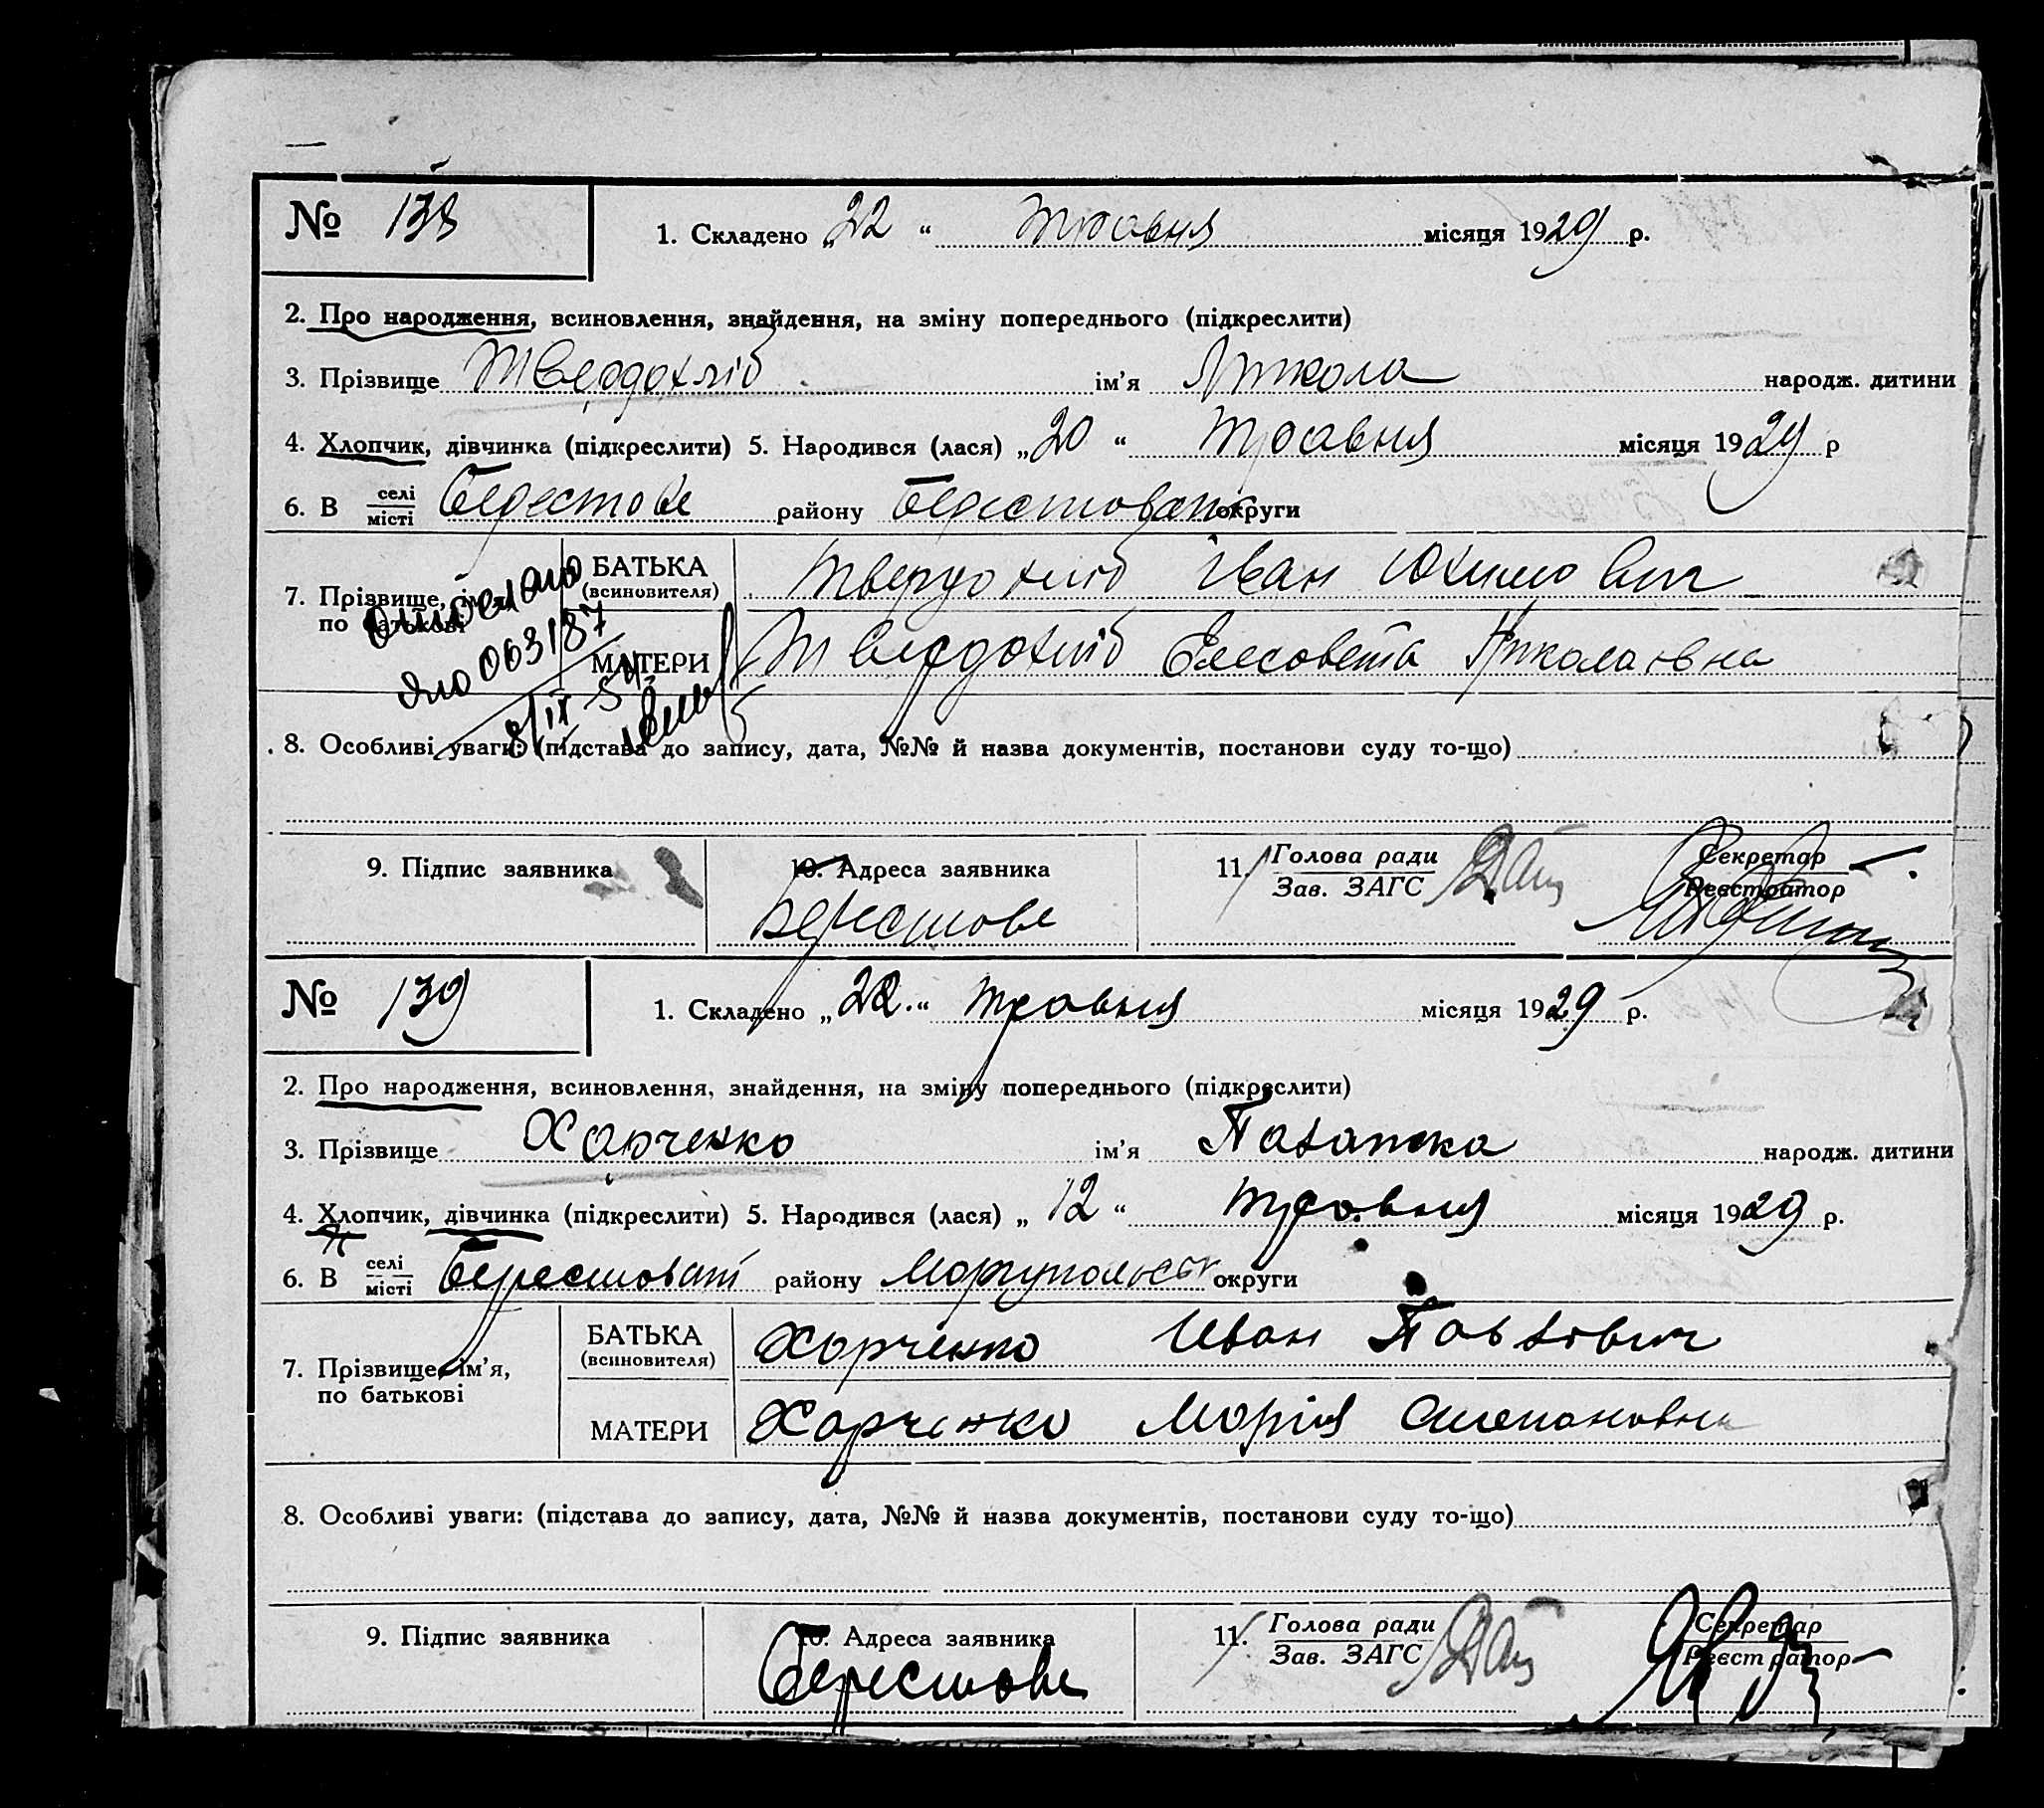 № 138
1. Складено „22“ травня місяця 1929 р.
2. Про народження, всиновлення, знайдення, на зміну попереднього (підкреслити)
3. Прізвище Твердохліб ім’я Микола народж. дитини
4. Хлопчик, дівчинка (підкреслити) 5. Народився (лася) „20“ травня місяця 1929 р
6. В селі місті Берестове району округи
7. Прізвище, ім’я, по батькові
БАТЬКА (всиновителя) Твердохліб Іван Юхимович
МАТЕРИ Твердохліб Елесовета Николаївна
063187
8/IX 54
8. Особливі уваги: (підстава до запису, дата, №№ й назва документів, постанови суду то-що)
9. Підпис заявника
10. Адреса заявника
11. Голова ради
Зав. ЗАГС
Секретар
Реєстратор
Берестове
№ 139
1. Складено „22.“ травня місяця 1929 р.
2. Про народження, всиновлення, знайдення, на зміну попереднього (підкреслити)
3. Прізвище Харченко ім’я народж. дитини
4. Хлопчик, дівчинка (підкреслити) 5. Народився (лася) „12“ травня місяця 1929 р.
6. В селі місті району округи
7. Прізвище, ім’я,
по батькові
БАТЬКА (всиновителя) Харченко Иван Павлович
МАТЕРИ Харченко Марія Степановна
8. Особливі уваги: (підстава до запису, дата, №№ й назва документів, постанови суду то-що)
9. Підпис заявника
10. Адреса заявника
11. Голова ради
Зав. ЗАГС
Секретар
Реєстратор
Берестове